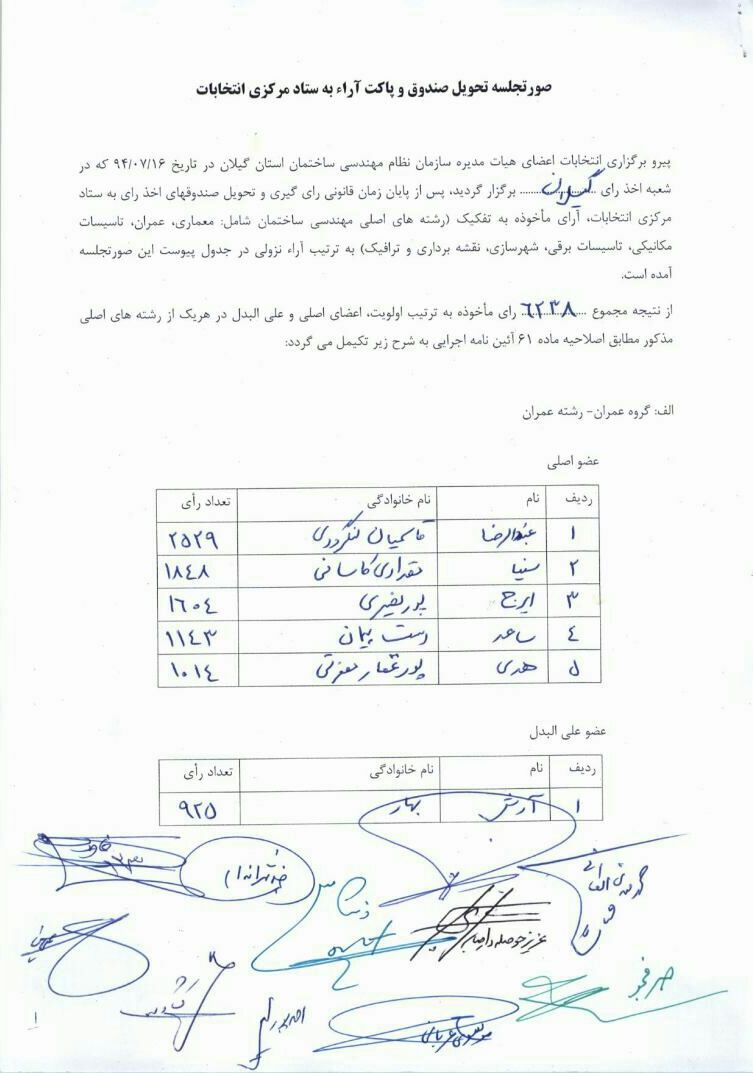 صورتجلسه تحویل صندوق و پاکت آراء به ستاد مرکزی انتخابات
پیرو برگزاری انتخابات اعضای هیات مدیره سازمان نظام مهندسی ساختمان استان گیلان در تاریخ ۹۴/۰۷/۱۶ که در
شعبه اخذ رای ....گیلان.... برگزار گردید، پس از پایان زمان قانونی رای گیری و تحویل صندوقهای اخذ رای به ستاد
مرکزی انتخابات، آرای مأخوذه به تفکیک (رشته های اصلی مهندسی ساختمان شامل: معماری، عمران، تاسیسات
مکانیکی، تاسیسات برقی، شهرسازی، نقشه برداری و ترافیک) به ترتیب آراء نزولی در جدول پیوست این صورتجلسه
آمده است.
از نتیجه مجموع ....۶۲۳۸.... رای مأخوذه به ترتیب اولویت، اعضای اصلی و علی البدل در هریک از رشته های اصلی
مذکور مطابق اصلاحیه ماده ۶۱ آئین نامه اجرایی به شرح زیر تکیمل می گردد:
الف: گروه عمران- رشته عمران
عضو اصلی
ردیف نام نام خانوادگی تعداد رأی
۱ عبدالرضا قاسمیان لنگرودی ۲۵۲۹
۲ سنیا مقداری کاسانی ۱۸٤۸
۳ ایرج پورنصیری ۱٦۰٤
٤ ساعد دست پیمان ۱۱٤۳
۵ هدی پورغفار مغزی ۱۰۱٤
عضو علی البدل
ردیف نام نام خانوادگی تعداد رأی
۱ آرش بهار ۹۲۵
عزیز حوصله دار صابر
۱